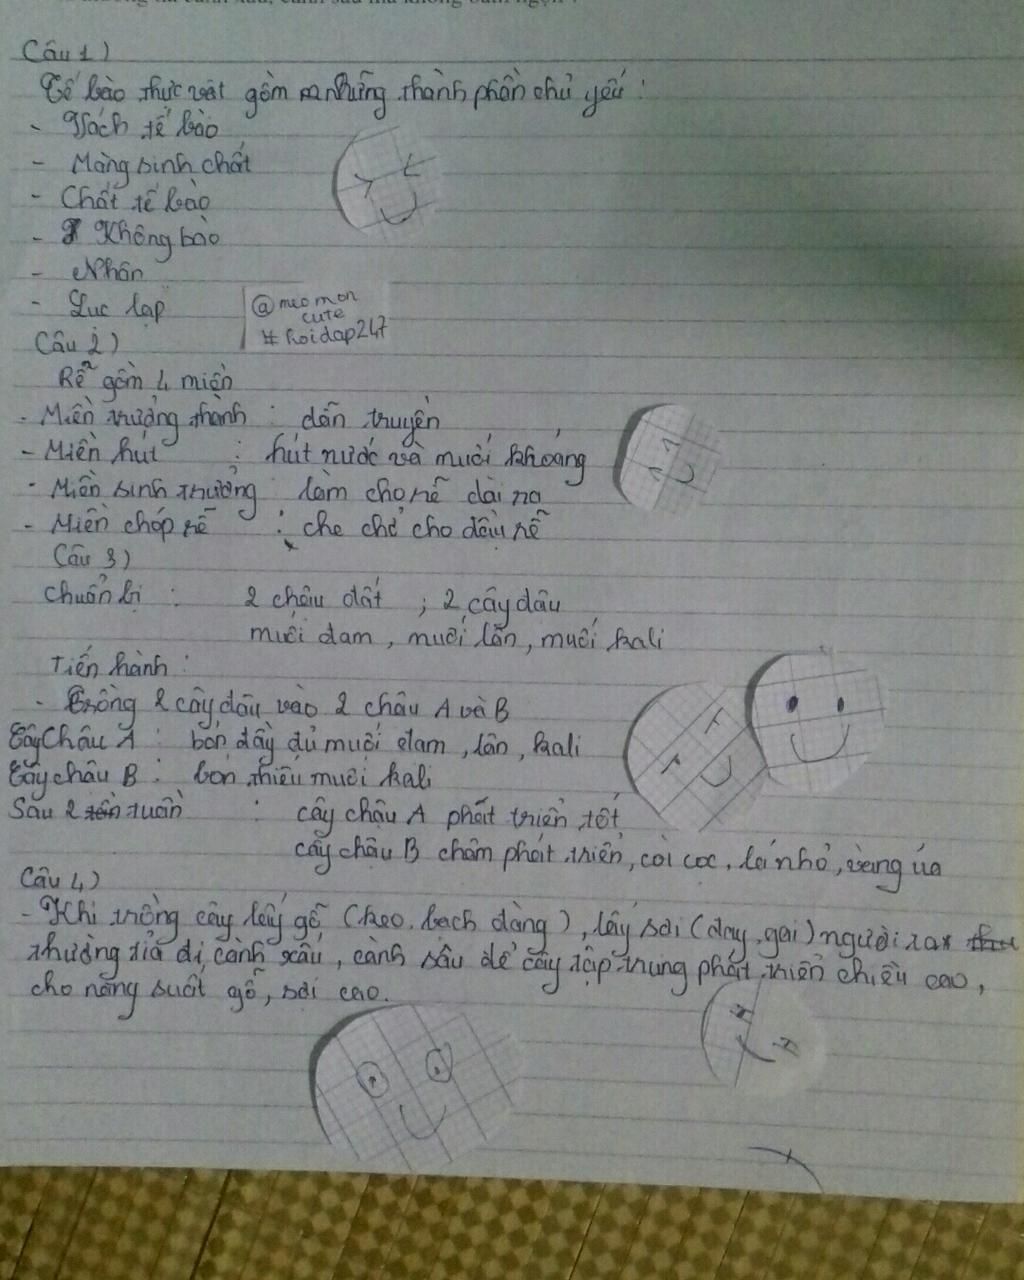 Câu 1)
Tế bào thực vật gồm những thành phần chủ yếu :
- Vách tế bào
- Màng sinh chất
- Chất tế bào
- Không bào
- Nhân
- Lục lạp
@meomon
cute
#hoidap247
Câu 2)
Rễ gồm 4 miền
- Miền trưởng thành : dẫn truyền
- Miền hút : hút nước và muối khoáng
- Miền sinh trưởng : làm cho rễ dài ra
- Miền chóp rễ : che chở cho đầu rễ
Câu 3)
Chuẩn bị : 2 chậu đất ; 2 cây đậu
muối đạm , muối lân , muối kali
Tiến hành :
- Trồng 2 cây đậu vào 2 chậu A và B
Cây Chậu A : bón đầy đủ muối đạm , lân , kali
Cây chậu B : bón thiếu muối kali
Sau 2 tuần : cây chậu A phát triển tốt
cây chậu B chậm phát triển , còi cọc , lá nhỏ , vàng úa
Câu 4)
- Khi trồng cây lấy gỗ (keo, bạch đàng) , lấy sợi (đay, gai) người ta
thường tỉa đi cành xấu , cành sâu để cây tập trung phát triển chiều cao ,
cho năng suất gỗ , sợi cao.